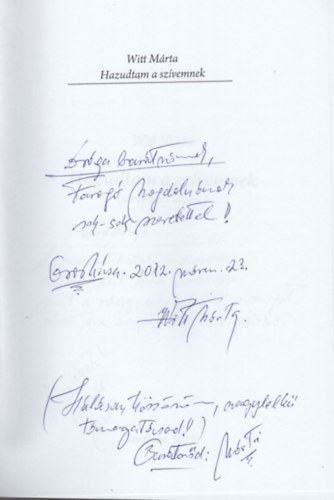 Witt Márta
Hazudtam a szívemnek
Drága barátnőmnek,
Faragó Magdolnának
sok-sok szeretettel!
2012. nov. 23.
Witt Márta.
(Hálásan köszönöm, nagylelkű
támogatásod!!)
Barátnőd: Márti